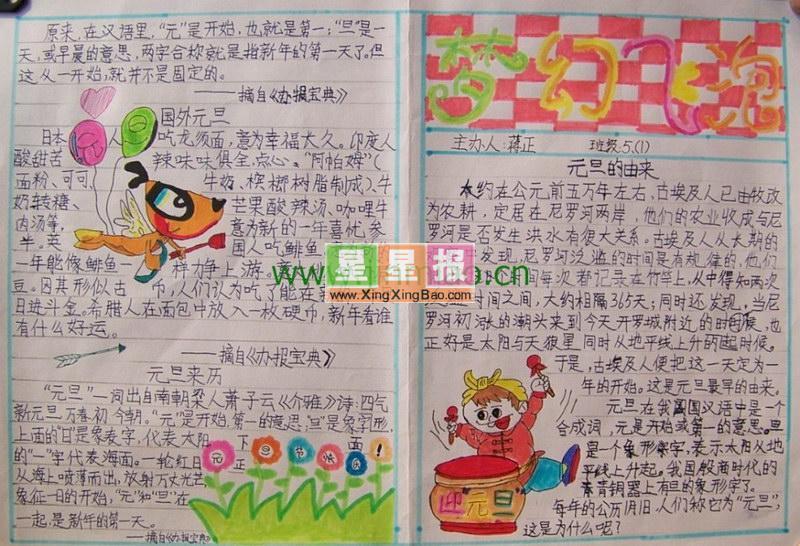 原来,在汉语里,“元”是开始,也就是第一;“旦”是一
天,或早晨的意思,两字合称就是指新年的第一天了。但
这从一开始,就并不是固定的。
——摘自《办报宝典》
国外元旦
日本 人 吃龙须面,意为幸福大久。印度人
酸甜苦 辣味味俱全,点心。“阿帕姆”(
面粉、可可、 牛奶、槟榔树脂制成)、牛
奶转糖、 芒果酸辣汤、咖哩牛
肉汤等, 意为新的一年喜忧参
半。英 国人吃鲱鱼
一年能像鲱鱼一 样力争上游
豆。因其形似古 币,人们认为吃了能在
日进斗金。希腊人在面包中放入一枚硬币,新年看谁
有什么好运。
——摘自《办报宝典》
元旦来历
“元旦”一词出自南朝梁人萧子云《介雅》诗:四气
新元旦,万春初今朝。“元”是开始,第一的意思,“旦”是象形字,
上面的“日”是象表字,代表太阳,下
的“一”字代表海面。一轮红日 正
从海上喷薄而出,放射万丈光芒,
象征一日的开始,“元”和“旦”在
一起,是新年的第一天。
——摘自《办报宝典》
元旦快乐!
梦幻飞泡
主办人:蒋正 班级:5.(1)
元旦的由来
大约在公元前五万年左右,古埃及人已由牧改
为农耕,定居在尼罗河两岸,他们的农业收成与尼
罗河是否发生洪水有很大关系。古埃及人从长期的
发现,尼罗河泛滥的时间是有规律的,他们
时间每次都记录在竹竿上,从中得知两次
时间之间,大约相隔365天;同时还发现,当尼
罗河初涨的潮头来到今天开罗城附近的时候,也
正好是太阳与天狼星同时从地平线上升的起时候。
于是,古埃及人便把这一天定为一
年的开始。这是元旦最早的由来。
元旦在我国汉语中是一个
合成词,元是开始或第一的意思。旦
是一个象形字,表示太阳从地
平线上升起。我国殷商时代的
青铜器上有旦的象形字了。
每年的公历1月1日,人们称它为“元旦”,
这是为什么呢?
迎“元旦”
星星报
www.XingXingBao.com